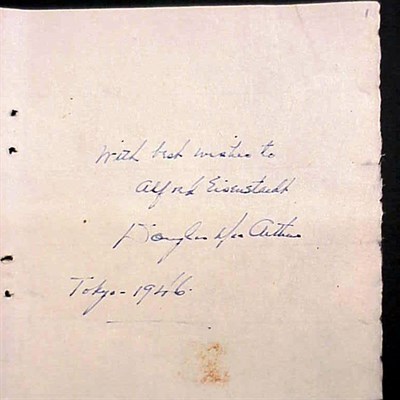 1
With best wishes to
Alfred Eisenstaedt
Douglas MacArthur
Tokyo - 1946.